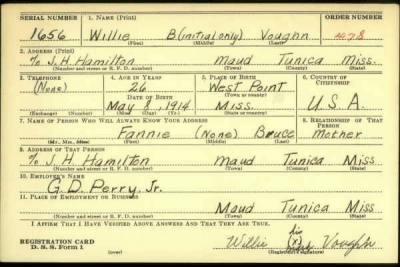 SERIAL NUMBER 1. NAME (Print) ORDER NUMBER
1656 Willie B(initial only) Vaughn 478
(First) (Middle) (Last)
2. ADDRESS (Print)
% J. H. Hamilton Maud Tunica Miss.
(Number and street or R. F. D. number) (Town) (County) (State)
3. TELEPHONE 4. AGE IN YEARS 5. PLACE OF BIRTH 6. COUNTRY OF CITIZENSHIP
(None) 26 West Point
DATE OF BIRTH (Town or county)
May 8, 1914 Miss. U.S.A.
(Exchange) (Number) (Mo.) (Day) (Yr.) (State or country)
7. NAME OF PERSON WHO WILL ALWAYS KNOW YOUR ADDRESS 8. RELATIONSHIP OF THAT PERSON
Fannie (None) Bruce Mother
(Mr., Mrs., Miss) (First) (Middle) (Last)
9. ADDRESS OF THAT PERSON
% J. H. Hamilton Maud Tunica Miss
(Number and street or R. F. D. number) (Town) (County) (State)
10. EMPLOYER'S NAME
G. D. Perry, Jr.
11. PLACE OF EMPLOYMENT OR BUSINESS
Maud Tunica Miss
(Number and street or R. F. D. number) (Town) (County) (State)
I AFFIRM THAT I HAVE VERIFIED ABOVE ANSWERS AND THAT THEY ARE TRUE.
REGISTRATION CARD
D. S. S. Form 1 (over)
his
Willie (x) Vaughn
mark
(Registrant's signature)